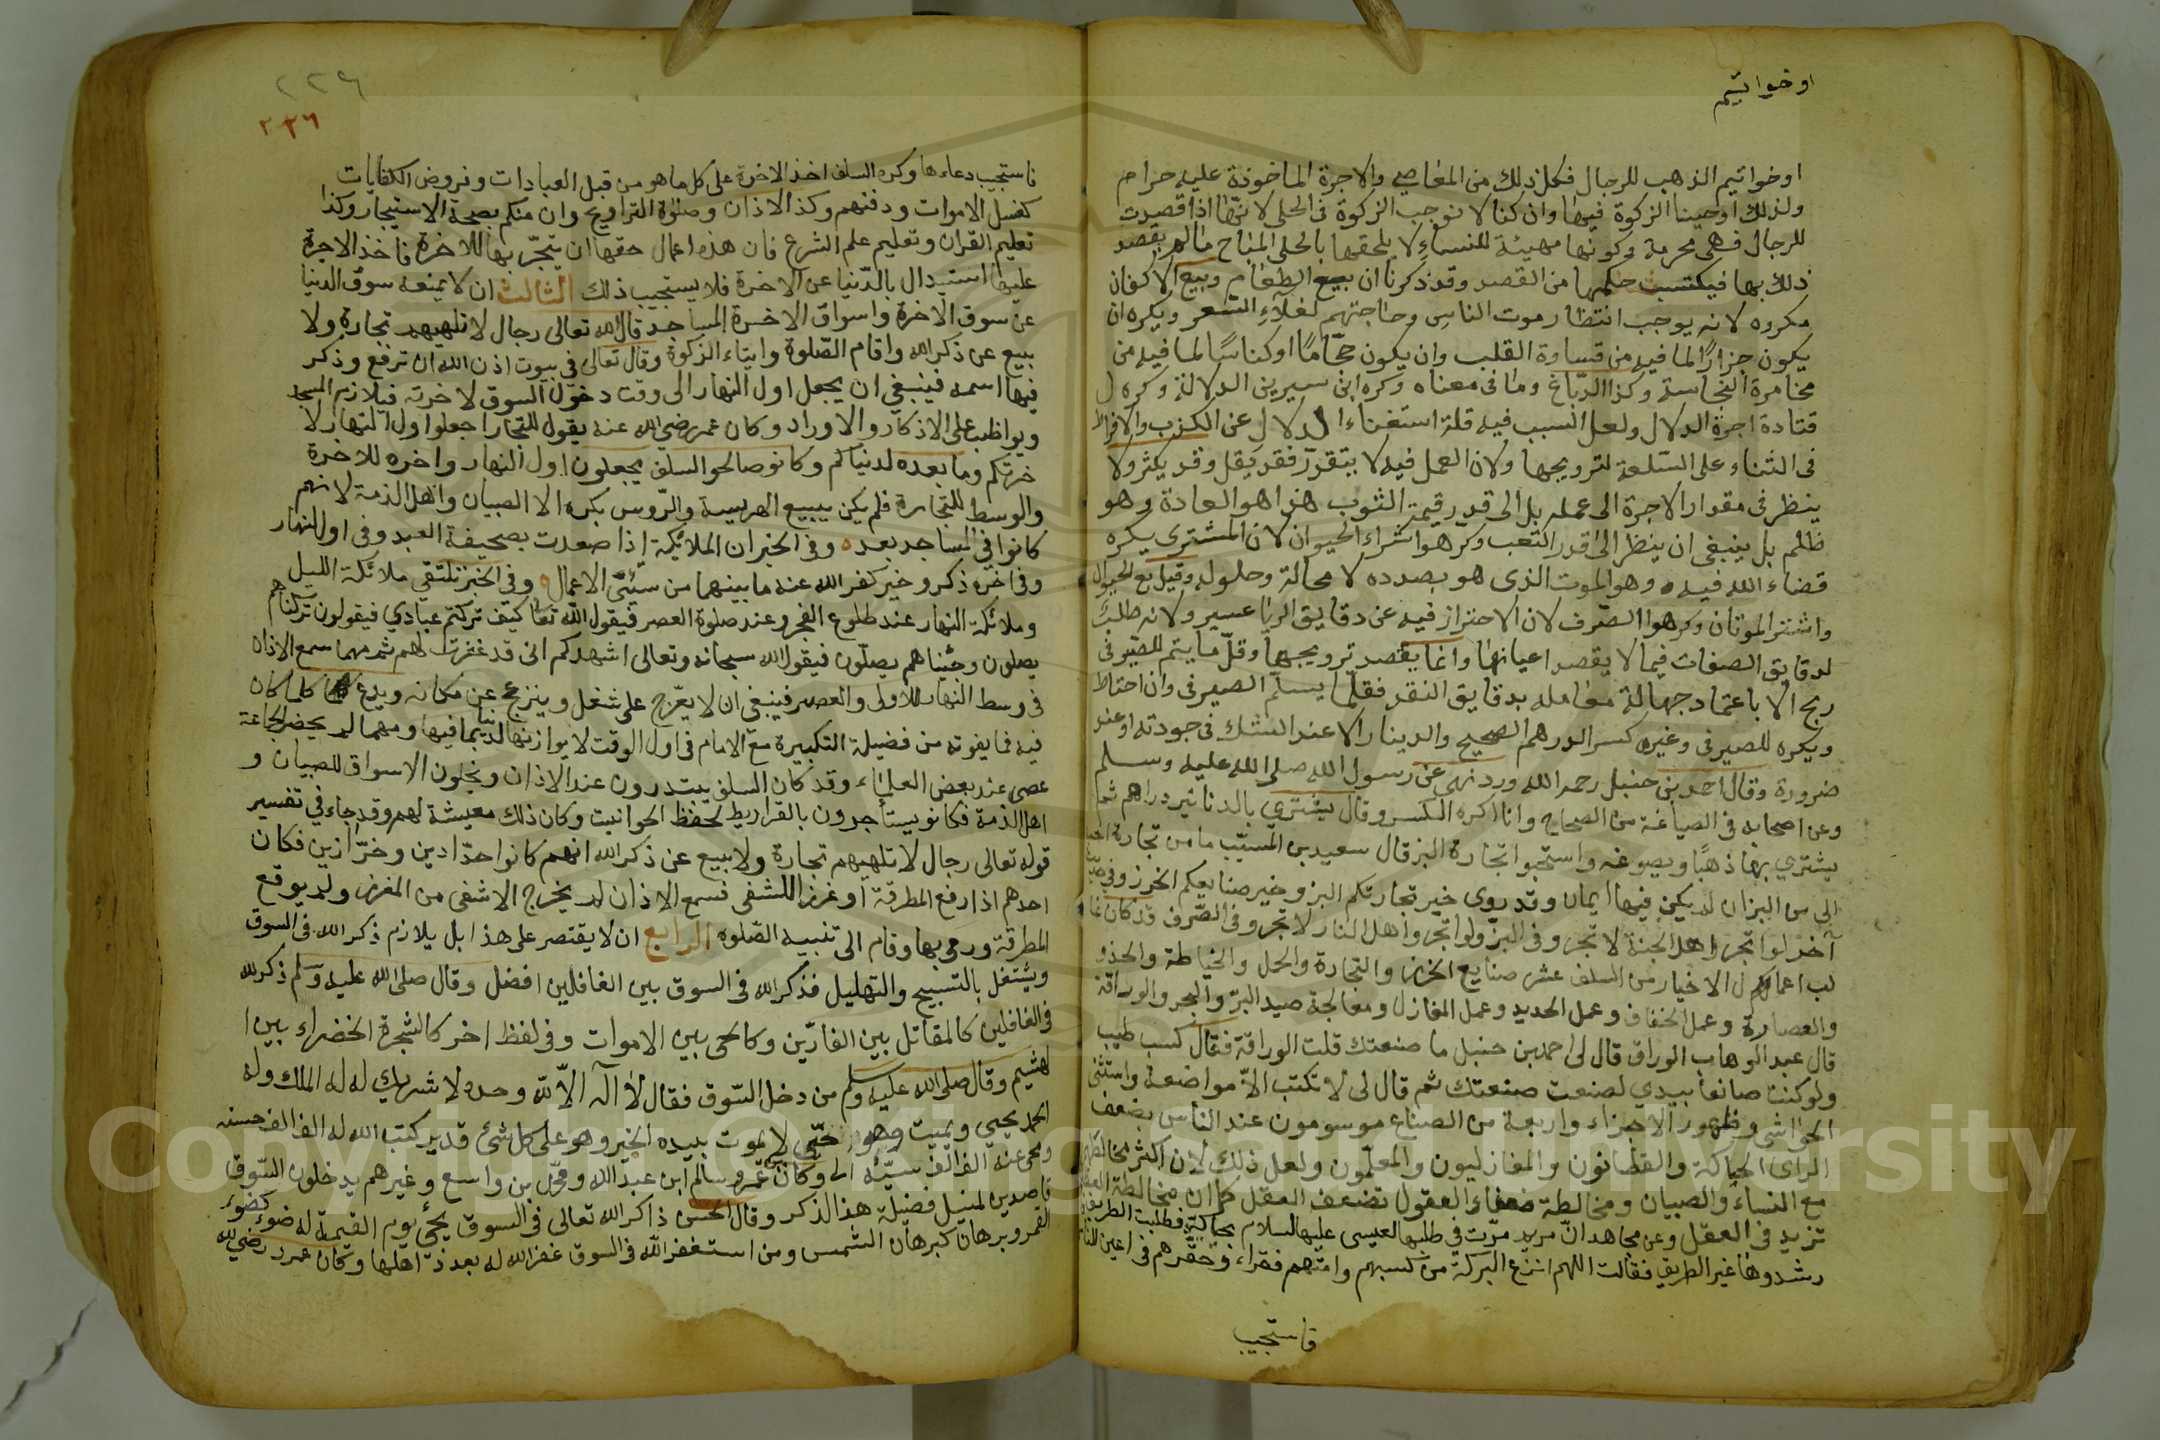 او خواتيم
او خواتيم الذهب للرجال فكل ذلك من المعاصي والاجرة الماخوذة عليه حرام
ولذلك اوجبنا الزكوة فيها وان كنا لا نوجب الزكوة في الحلي لانها اذا قصدت
للرجال فهى محرمة وكونها مهيئة للنساء لا يلحقها بالحلى المباح مالم يقصد
ذلك بها فيكتسب حكمها من القصد وقد ذكرنا ان بيع الطعام وبيع الاكفان
مكروه لانه يوجب انتظار موت الناس وحاجتهم لغلاء السعر ويكره ان
يكون جزارًا لما فيه من قساوة القلب وان يكون حجّامًا اوكناسًا لما فيه من
مخامرة النجاسة وكذا الدبّاغ وما فى معناه وكره ابن سيرين الدلالة وكره
قتادة اجرة الدلال ولعل السبب فيه قلة استغناء الدلال عن الكذب والافراط
فى الثناء على السّلعة لترويجها ولان العمل فيه لا يتقدّر فقد يقل وقد يكثر ولا
ينظر فى مقدار الاجرة الى عمله بل الى قدر قيمة الثوب هذا هو العادة وهو
ظلم بل ينبغى ان ينظر الى قدر التعب وكرهوا شراء الحيوان لان المشترى يكره
قضاء الله فيه وهو الموت الذى هو بصدده لا محالة وحلوله وقيل بع الحيوان
واشتر الموتان وكرهوا الصّرف لان الاحتراز فيه عن دقايق الربا عسير ولانه طلب
لدقايق الصفات فيما لا يقصد اعيانها وانما يقصد ترويجها وقلّ ما يتم للصيرفى
ربح الا باعتماد جهالة معامله بدقايق النقد فقلّما يسلّم الصيرفى وان احتاط
ويكره للصيرفى وغيره كسر الدرهم الصحيح والدينار الا عند الشك فى جودته او عند
ضرورة وقال احمد بن حنبل رحمه الله ورد نهى عن رسول الله صلى الله عليه وسلم
وعن اصحابه فى الصياغة من الصحاح وانا اكره الكسر وقال يشتري بالدنانير دراهم ثم
يشتري بها ذهبًا ويصوغه واستحبوا تجارة البز قال سعيد بن المسيّب ما من تجارة احب
الي من البز ان لم يكن فيها ايمان وقد روى خير تجارتكم البز وخير صنايعكم الخرز وفي حديث
آخر لو اتجر اهل الجنة لاتجروا فى البزّ ولو اتجر اهل النار لاتجروا فى الصّرف وقد كان غا
لب اعمال الاخيار من السلف عشر صنايع الخرز والتجارة والحمل والخياطة والحذو
والعصارة وعمل الخفاف وعمل الحديد وعمل المغازل ومعالجة صيد البرّ والبحر والوراقة
قال عبد الوهاب الوراق قال لى احمد بن حنبل ما صنعتك قلت الوراقة فقال كسب طيب
ولو كنت صانعا بيدي لصنعت صنعتك ثم قال لى لا تكتب الاّ مواضعة واستثنى
الحواشى وظهور الاجزاء واربعة من الصناع موسومون عند الناس بضعف
الراى الحياكة والقطانون والمغازليون والمعلّمون ولعل ذلك لان اكثر مخالطتهم
مع النساء والصبيان ومخالطة ضعفاء العقول تضعف العقل كما ان مخالطة العقلاء
تزيد فى العقل وعن مجاهد انّ مريم مرّت فى طلبها لعيسى عليها السلام بحاكة فطلبت الطريق
رشدوها غير الطريق فقالت اللهم انزع البركة من كسبهم وامتهم فقراء وحقّرهم فى اعين الناس
فاستجيب
٢٢٦
٢٢٦
فاستجيب دعاءها وكره السلف اخذ الاجرة على كل ماهو من قبل العبادات وفروض الكفايات
كغسل الاموات ودفنهم وكذا الاذان وصلوة التراويح وان حكم بصحة الاستيجار وكذا
تعليم القران وتعليم علم الشرع فان هذه اعمال حقها ان يتجّر بها للاخرة فاخذ الاجرة
عليها استبدال بالدّنيا عن الاخرة فلا يستجيب ذلك الثالث ان لا يمنعه سوق الدنيا
عن سوق الاخرة واسواق الاخرة المساجد قال الله تعالى رجال لا تلهيهم تجارة ولا
بيع عن ذكر الله واقام الصّلوة وايتاء الزكوة وقال تعالى فى بيوت اذن الله ان ترفع وذكر
فيها اسمه فينبغي ان يجعل اول النهار الى وقت دخول السوق لاخرته فيلازم المسجد
ويواظب على الاذكار والاوراد وكان عمر رضي الله عنه يقول للتجار اجعلوا اول النهار لا
خرتكم وما بعده لدنياكم وكانو صالحو السلف يجعلون اول النهار واخره للاخرة
والوسط للتجارة فلم يكن يبيع الهريسة والرّوس بكره الا الصبيان واهل الذمة لانهم
كانوا في المساجد بعد وفى الخبر ان الملائكة اذا صعدت بصحيفة العبد وفى اول النهار
وفى اخره ذكر وخير كفر الله عنه ما بينهما من سيّئ الاعمال وفى الخبر تلتقي ملائكة الليل
وملائكة النهار عند طلوع الفجر وعند صلوة العصر فيقول الله تعا كيف تركتم عبادي فيقولون تركناهم
يصلون وجئناهم يصلّون فيقول الله سبحانه وتعالى اشهدكم انى قد غفرت لهم ثم مهما سمع الاذان
فى وسط النهار للاولى والعصر فينبغي ان لا يعرّج على شغل وينزعج عن مكانه ويدع كلما كان
فيه فما يفوته من فضيلة التكبيرة مع الامام فى اول الوقت لا يوازنها الدنيا بما فيها ومهما لم يحضر الجماعة
عصى عند بعض العلماء وقد كان السلف يبتدرون عند الاذان ويخلون الاسواق للصبيان و
اهل الذمة فكانو يستأجرون بالقراريط لحفظ الحوانيت وكان ذلك معيشة لهم وقد جاء في تفسير
قوله تعالى رجال لا تلهيهم تجارة ولا بيع عن ذكر الله انهم كانوا حدّادين وخرّازين فكان
احدهم اذا رفع المطرقة او غرز الاشفى فسمع الاذان لم يخرج الاشفى من المغرز ولم يوقع
المطرقة ورمى بها وقام الى تنبيه الصّلوه الرابع ان لا يقتصر على هذا بل يلازم ذكر الله فى السوق
ويشتغل بالتسبيح والتهليل فذكر الله فى السوق بين الغافلين افضل وقال صلى الله عليه وسلم ذكر الله
فى الغافلين كالمقاتل بين الفارّين وكالحى بين الاموات وفى لفظ اخر كالشجرة الخضراء بين ا
لهشيم وقال صلى الله عليه وسلم من دخل السّوق فقال لا اله الا الله وحده لا شريك له له الملك وله
الحمد يحيى ويميت وهو حىّ لا يموت بيده الخير وهو على كل شئ قدير كتب الله له الف الف حسنه
ومحى عنه الف الف سيّئه الى وكان عمر وسالم ابن عبد الله ومحمد بن واسع وغيرهم يدخلون السّوق
قاصدين لمنيل فضيلة هذا الذكر وقال الحسن ذاكر الله تعالى فى السوق يجئ يوم القيمة له ضوء كضوء
القمر وبرهان كبرهان الشمس ومن استغفر الله فى السوق غفر الله له بعدد اهلها وكان عمر رضي الله
Copyright © King Saud University